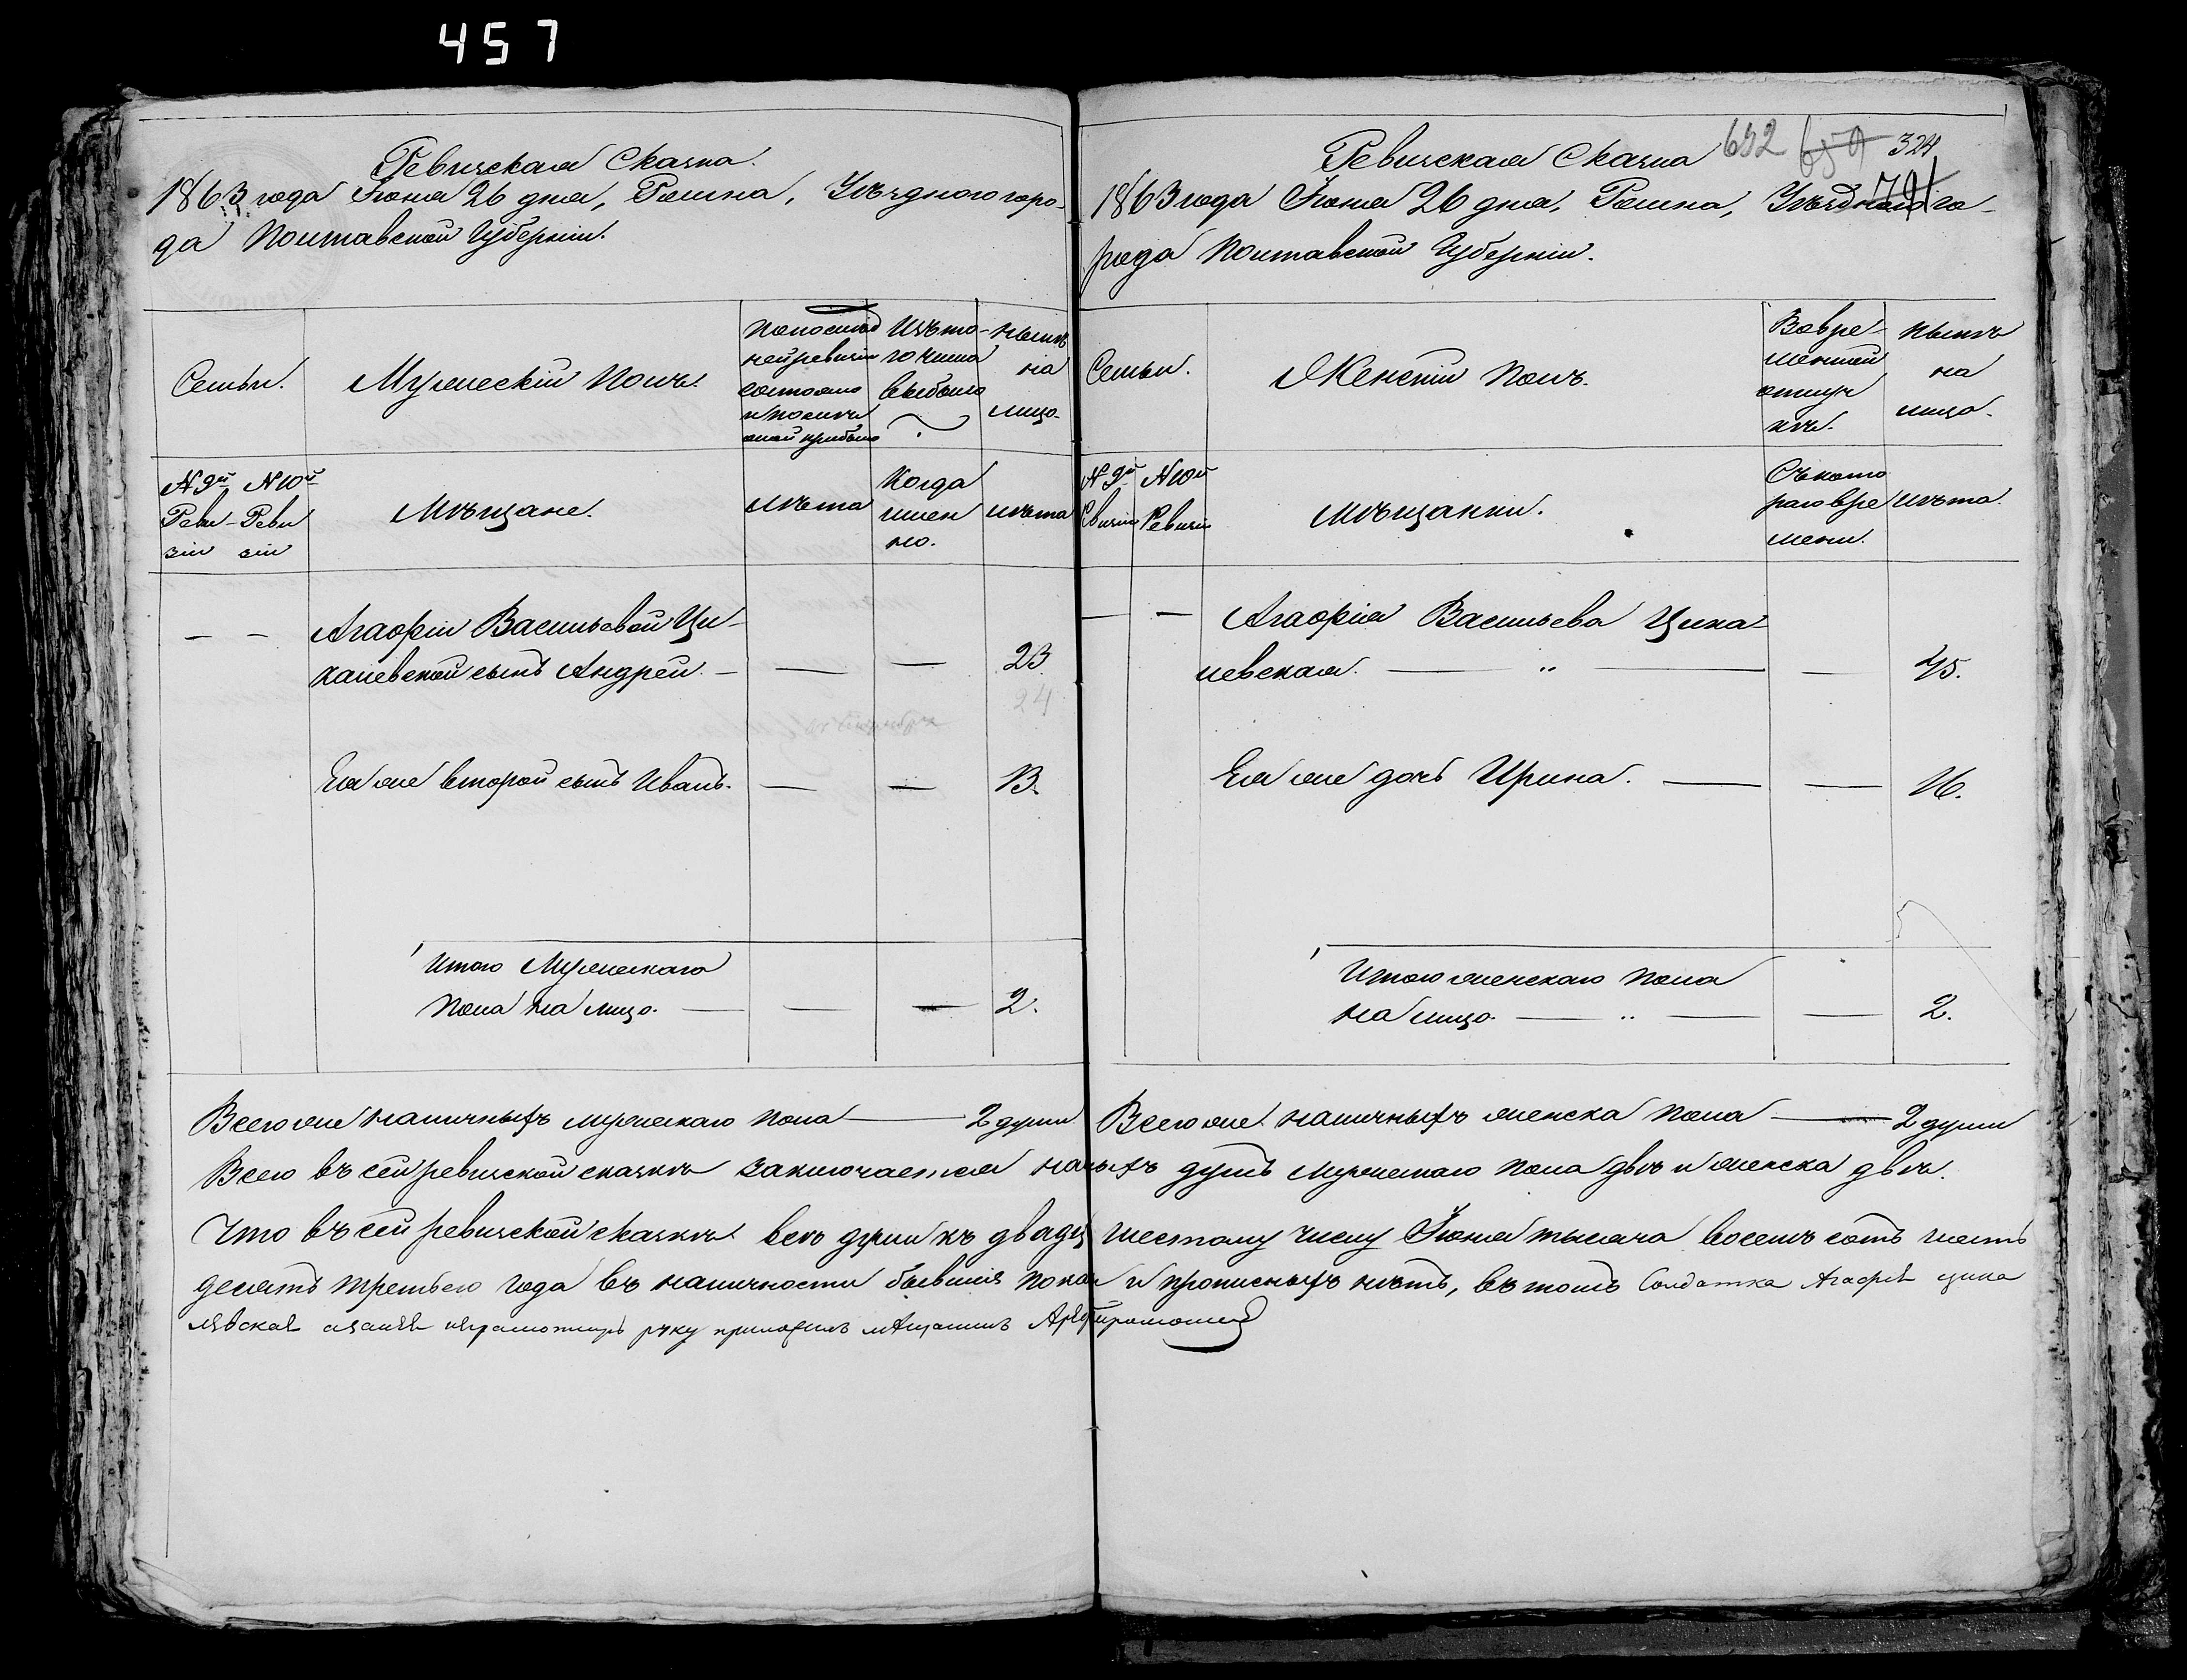 457
Ревизская Сказка.
1863 года Іюня 26 дня, Ромна, Уѣзднаго горо-
да Полтавской Губерніи.
Семьи.
Мужескій полъ.
По послѣд
ней ревизіи
состояло
и послѣ
оной прибыло
Изъ то-
го числа
выбыло
нынѣ
на
лицо.
№ 9й
Реви-
зіи
№ 10й
Реви
зіи
Мѣщане.
Лѣта
Когда
имен
но.
лѣта
— — Агафіи Васильевой Ци-
калевской сынъ Андрей. — — — 23.
24
Ея же второй сынъ Иванъ. — — 13.
Итого Мужескаго
пола на лицо. — — — 2.
Всего же наличныхъ мужескаго пола — 2 души
652 650 324
Ревизская Сказка
1863 года Іюня 26 дня, Ромна, Уѣзднаго го-
рода Полтавской Губерніи.
Семьи.
Женскій полъ.
Во вре-
менной
отлуч
кѣ.
нынѣ
на
лицо.
№ 9й
Ревизіи
№ 10й
Ревизіи
Мѣщанки.
Съ кото
раго вре
мени.
Лѣта.
— — Агафія Васильева Цика
левская. — „ — — 45.
Ея же дочь Ирина. — — 16.
Итого женскаго пола
на лицо. — „ — — 2.
Всего же наличныхъ женска пола — 2 души
Всего въ сей ревизской сказкѣ заключается душъ мужескаго пола двѣ и женска двѣ.
Что въ сей ревизской сказкѣ всѣ души къ двадц шестому числу Іюня тысяча восемь сотъ шесть
десятъ третьего года въ наличности бывшія и прописныхъ нѣтъ, въ томъ Солдатка Агафія цика
левская неграмотную руку приложилъ мѣщанинъ